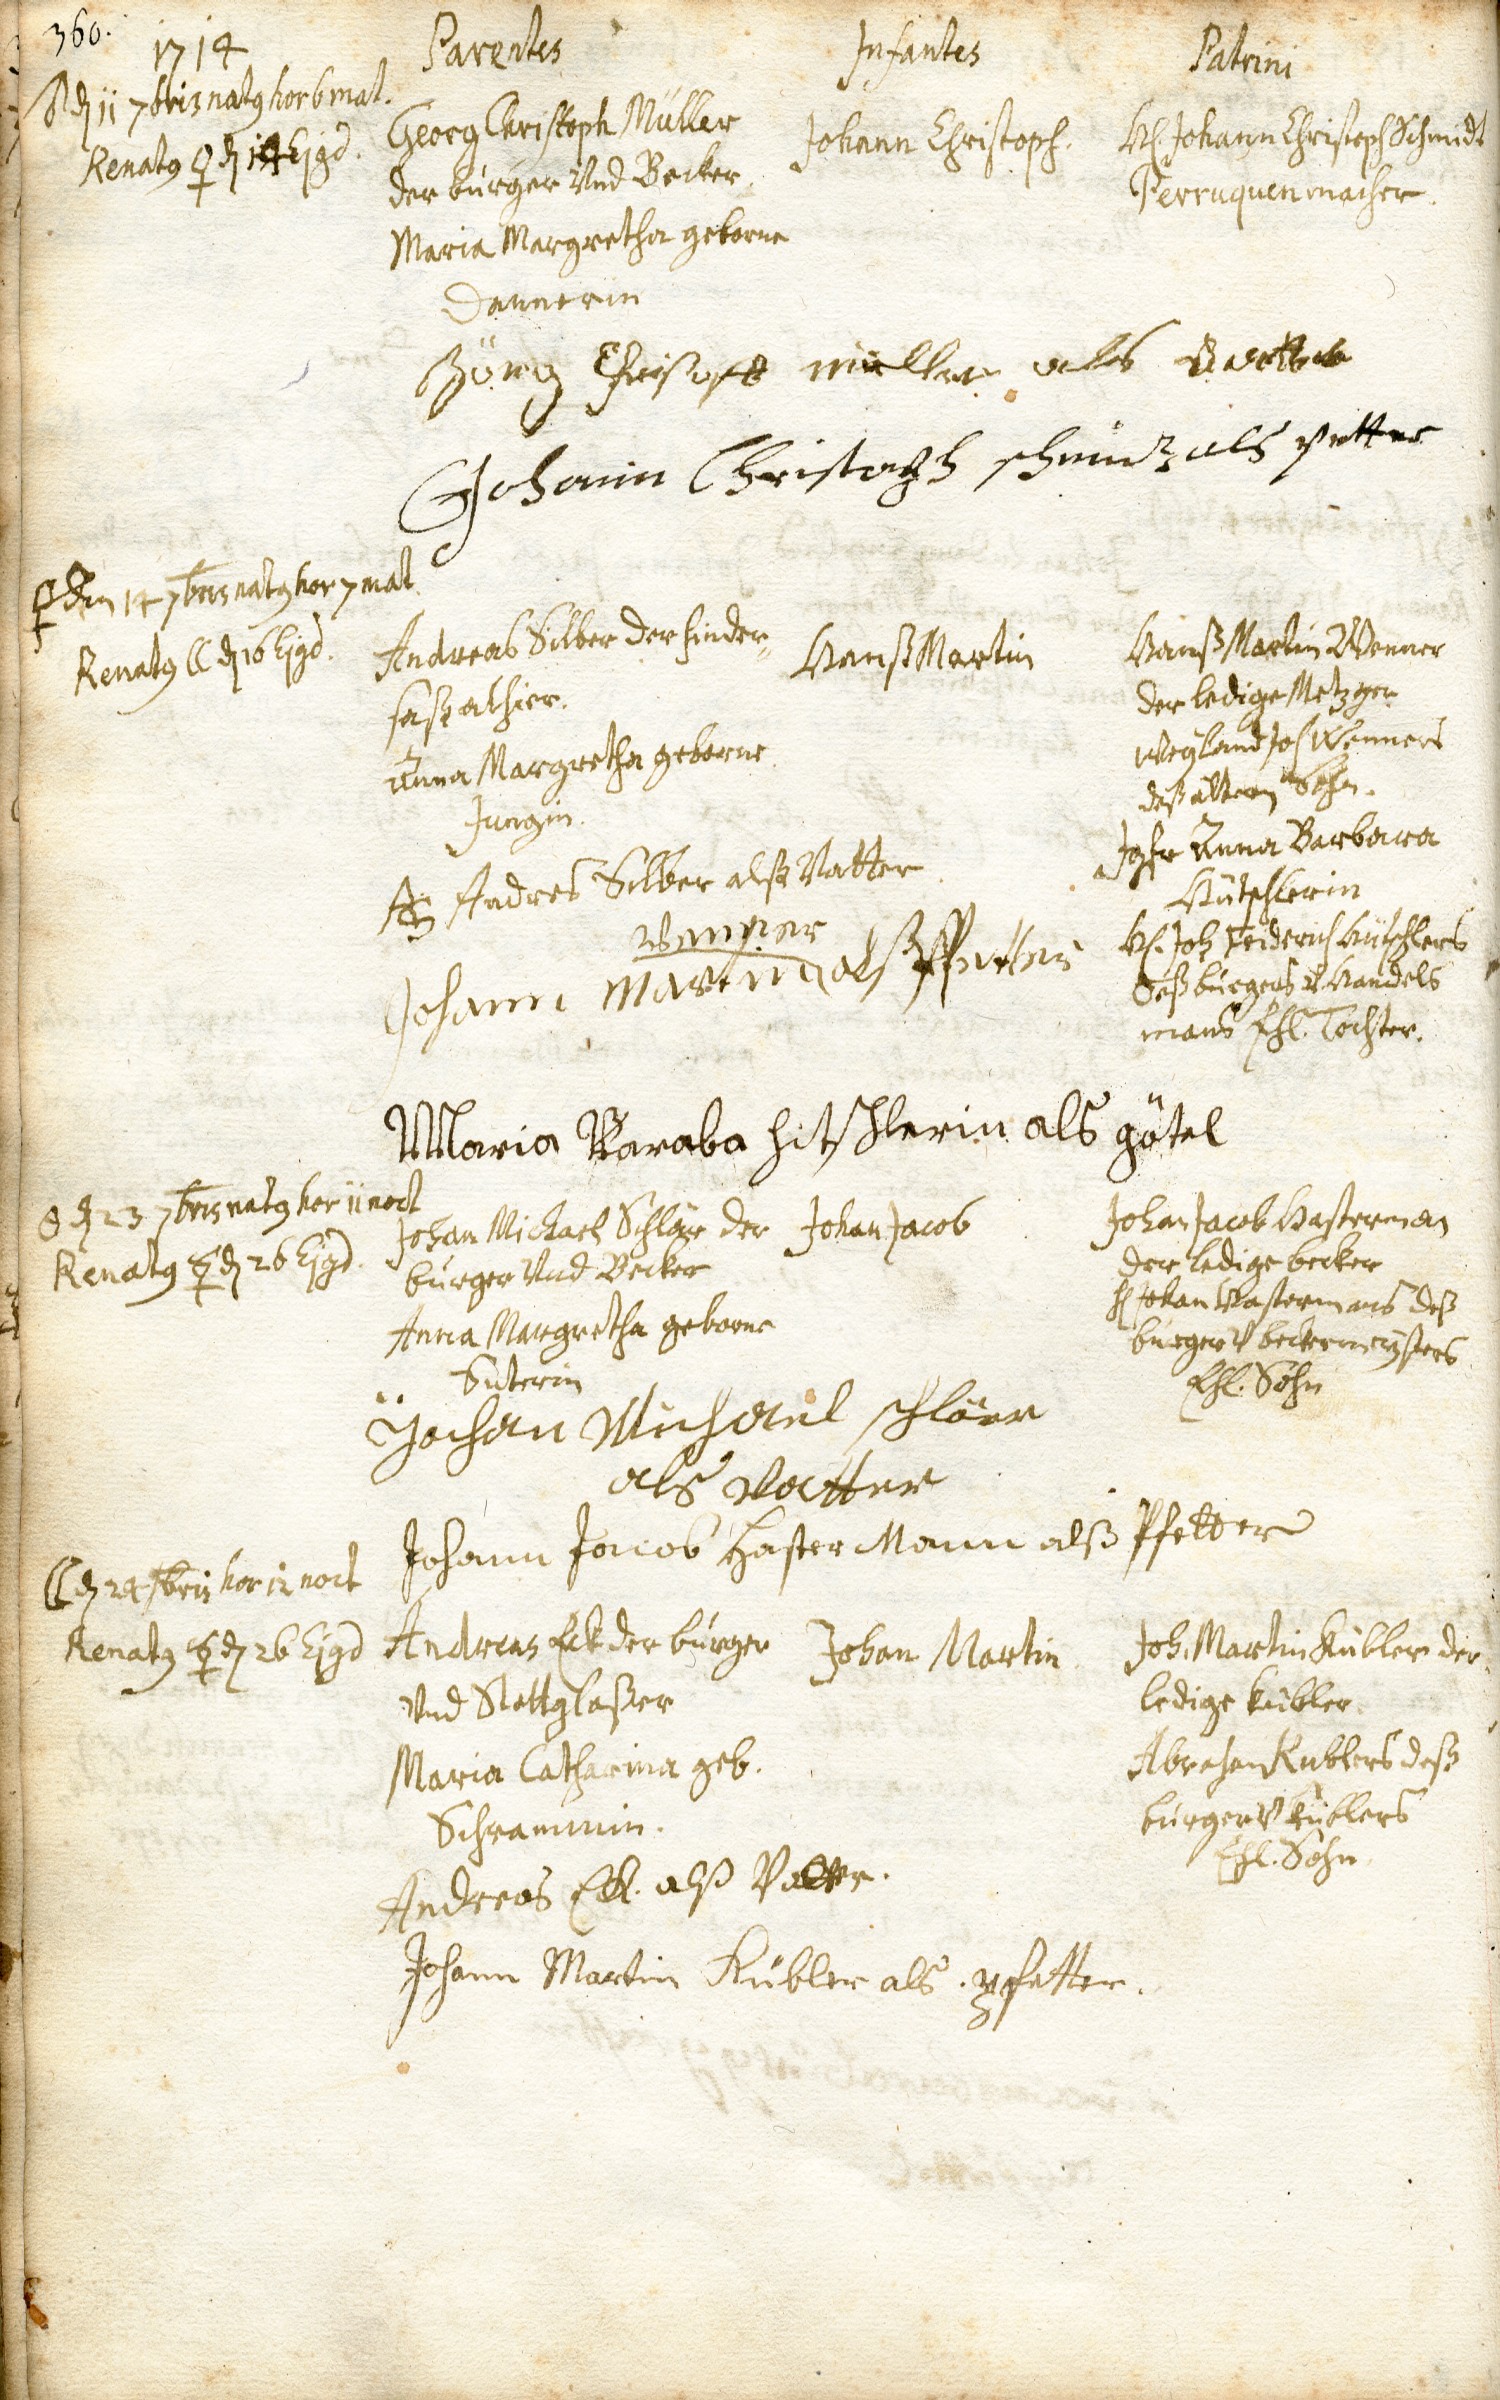 360.
1714
Parentes
Infantes
Patrini
♂ dn 11 7bris nat9 hor 6 mat.
Renat9 ♀ dn 14 Ejgd.
Georg Christoph Müller
der burger Vnd Becker
Maria Margretha geborne
Dannerin
Johann Christoph.
H. Johann Christoph Schmidt
Perruquenmacher.
Jörg Chrisoff müller als Vatter
Johann Christoph schmidt als petter
♀ den 14 7bris nat9 hor 7 mat.
Renat9 ☾ dn 16 Ejgd.
Andreas Silber der hinder=
sass alhier.
Anna Margretha geborne
Jungin.
Hanß Martin
Hanß Martin Wenner
der ledige Metzger
weyland Joh Wenners
deß ältern Sohn.
Jgfr Anna Barbara
Hütschlerin
H. Joh Friderich Hütschlers
deß burgers v Handels
mans Ehl. Tochter.
AS Andres Silber alß Vatter
wenner
Johann Martin alß Pfetter
Maria Baraba hitschlerin als götel
dn 23 7bris nat9 hor 11 noct
Renat9 dn 26 Ejgd.
Johan Michael Schlör der
burger Vnd Becker
Anna Margretha geborne
Suterin
Johan Jacob
Johan Jacob Hasterman
der ledige becker
H Johan Hastermans deß
burger v beckermeysters
Ehl. Sohn
Johan Michael schlöer
als Vatter
Johann Jacob Haster Mann alß Pfetter
☾ dn 24 7bris hor 12 noct
Renat9 dn 26 Ejgd
Andreas Eck der burger
Vnd Slottglaßer
Maria Catharina geb.
Schrammin.
Johan Martin
Joh. Martin Kübler der
ledige kübler.
Abraham Küblers deß
burger v küblers
Ehl. Sohn
Andreas Eck. alß Vatter.
Johann Martin Kübler als. pfetter.